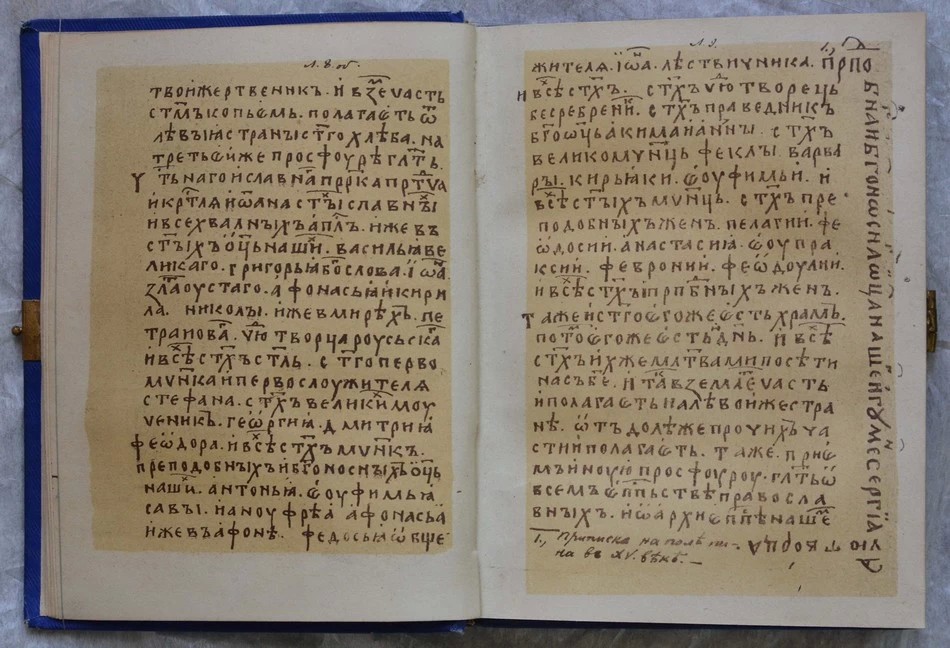 Л. 8. об.
твоижертвеникъ. и взе часть
стмъ копьемь. полагаеть ѿ
лѣвыꙗ страны стго хлѣба. на
третьеиже просфоурѣ глть.
чть наго и славна пррка прдтча
и кртлꙗ иѡана стыславны
ивсехвалныхъ аплъ. ижевъ
стыхъ ѡць наши. васильꙗ ве
ликаго. григорьꙗ бгослова. іѡа
златоустаго. афонасьꙗ и кири
ла. николы. ижевмирехъ. пе
тра инова. чю творца роусьска
ивсѣ стхъ стль. стго перво
мчнка и первослоужителꙗ
стефана. стхъ великимоу
ченикъ. геѡргиꙗ. дмитриꙗ
феѡдора. и всѣ стхъ мчнкъ.
преподобныхъ и бгоносныхъ ѡць
наши. антоньꙗ. еоуфимьꙗ
савы. и аноуфрѣꙗ афонасьꙗ
ижевъ афоне. федосьꙗ ѡбще
Л. 9.
жителꙗ. іѡа. лѣствичника. прпо
и всѣ стхъ. стхъ чютворець
бесребрени. стхъ праведникъ
бгоѡць акима и анны. стхъ
великомчнць феклы. варва
ры. кирьꙗки. еоуфимьи. и
всѣ стыхъ мчнць. стхъ пре
подобныхъ женъ. пелагии. фе
ѡдосии. анастасиꙗ. еоупра
ксии. февронии. феѡдоулии.
и всѣ стхъ прпбныхъ женъ.
таже и стго егожеесть храмъ.
пото егожеесть днь. и всѣ
стхъ ихжемлтвами посети
насъ бе. и та вземле часть
и полагаеть на лѣвои же стра
нѣ. ѿтъ долѣже прочихъ ча
стии полагаеть. таже. прие
мъ иноую просфоуроу. глть ѡ
всемъ епппьствѣ правосла
вныхъ. и ѡ архиеппѣ наше
1.,
бнаи бгоносна ѡца нашеи гумее сергіа
чюдотворца
1., Приписка на полѣ пи-
на въ XV. вѣкѣ. —